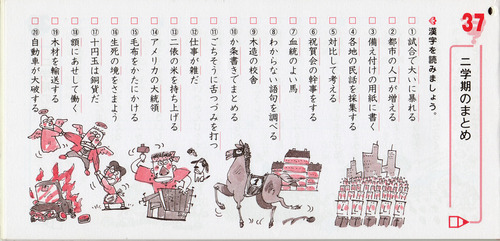 37
二学期のまとめ
漢字を読みましょう。
① 試合で大いに暴れる
② 都市の人口が増える
③ 備え付けの用紙に書く
④ 各地の民話を採集する
⑤ 対比して考える
⑥ 祝賀会の幹事をする
⑦ 血統のよい馬
⑧ わからない語句を調べる
⑨ 木造の校舎
⑩ か条書きでまとめる
⑪ ごちそうに舌つづみを打つ
⑫ 仕事が雑だ
⑬ 二俵の米を持ち上げる
⑭ アメリカの大統領
⑮ 毛布をかたにかける
⑯ 生死の境をさまよう
⑰ 十円玉は銅貨だ
⑱ 額にあせして働く
⑲ 木材を輸送する
⑳ 自動車が大破する